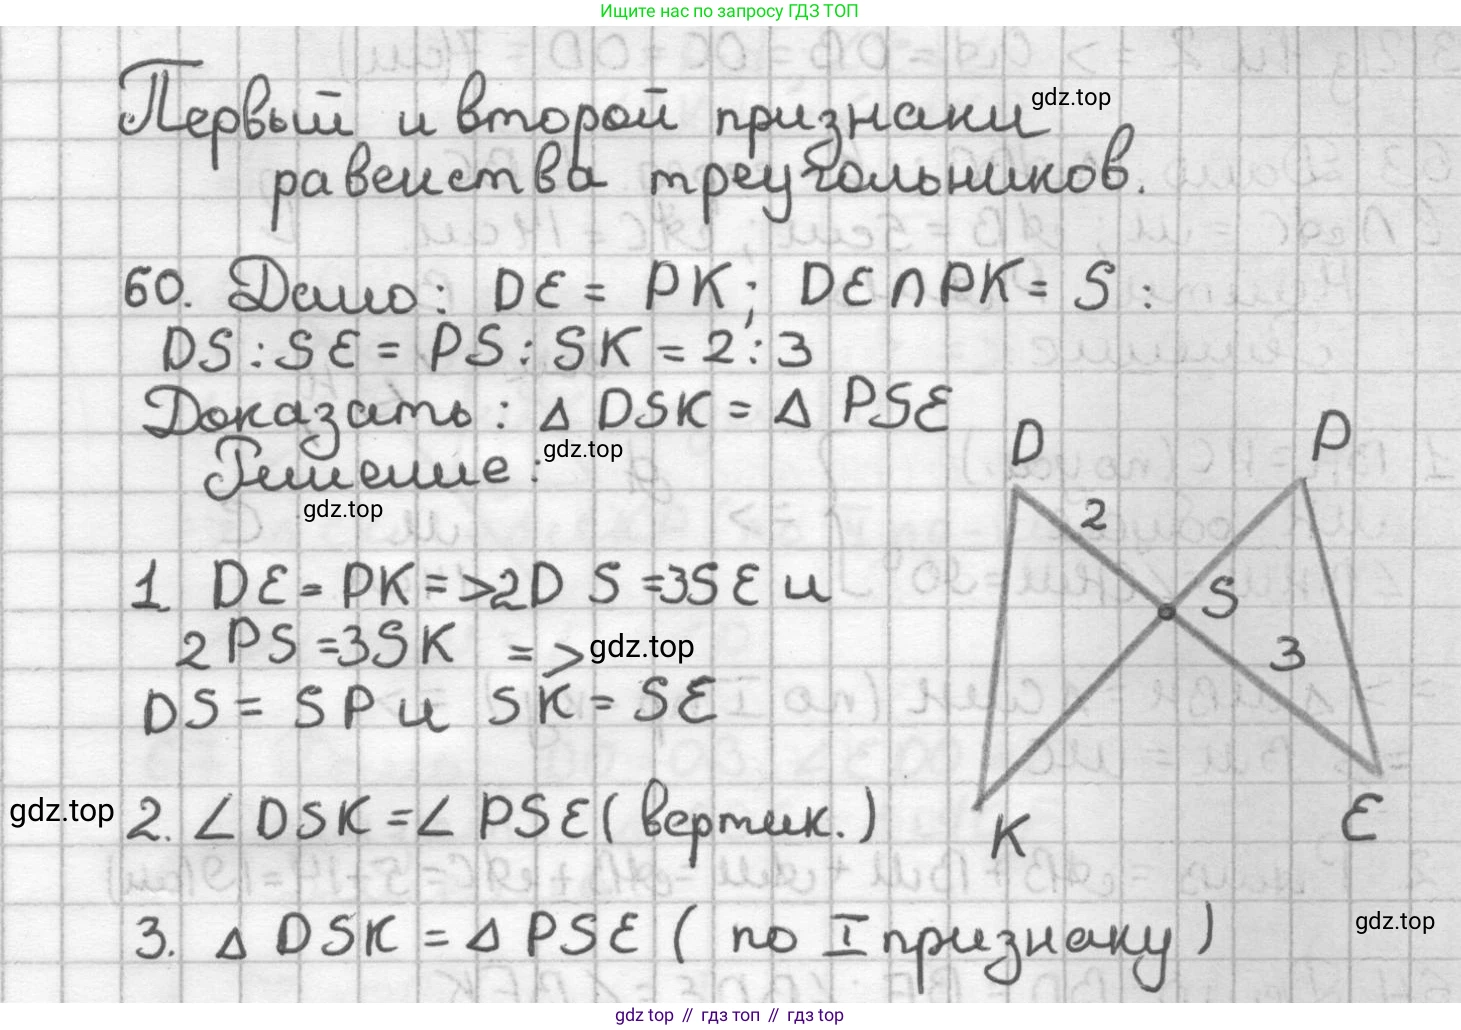 Ищите нас по запросу ГДЗ ТОП
Первый и второй признаки
gdz.top
равенства треугольников.
60. Дано: DE = PK; DE∩PK = S :
DS : SE = PS : SK = 2 : 3
Доказать: Δ DSK = Δ PSE
Решение:
gdz.top
gdz.top
D
P
2
S
3
K
E
1 DE = PK => 2DS = 3SE и
2PS = 3SK =>
gdz.top
DS = SP и SK = SE
gdz.top
2. ∠ DSK = ∠ PSE ( вертик. )
3. Δ DSK = Δ PSE ( по I признаку )
gdz.top
gdz top // гдз топ // гдз top